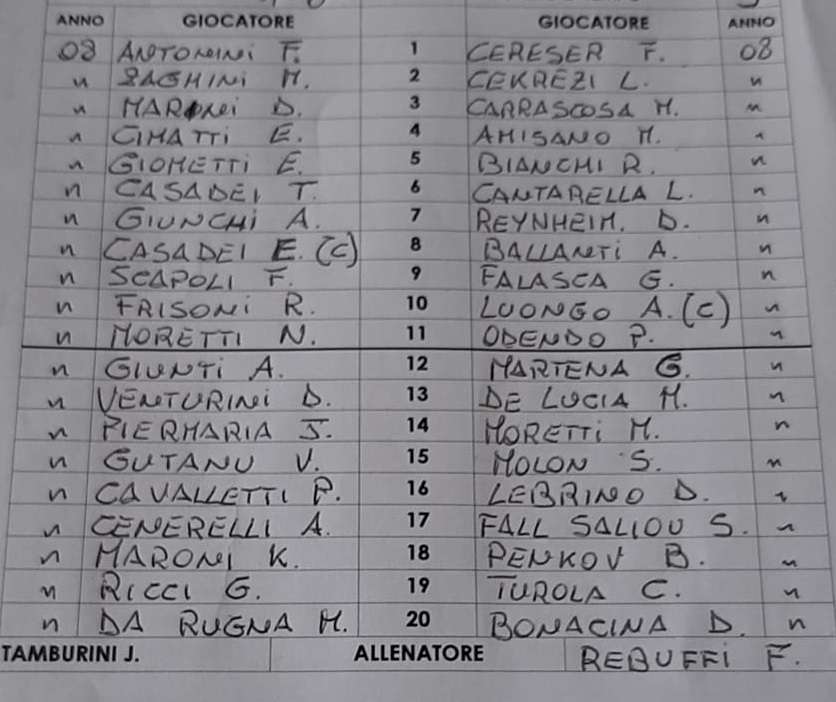 ANNO GIOCATORE GIOCATORE ANNO
08 ANTONINI F. 1 CERESER F. 08
" ZAGHINI M. 2 CEKREZI L. "
" MARONI D. 3 CARRASCOSA M. "
" CIMATTI E. 4 AMISANO M. "
" GIOMETTI E. 5 BIANCHI R. "
" CASADEI T. 6 CANTARELLA L. "
" GIUNCHI A. 7 REYNHEIM. D. "
" CASADEI E. (C) 8 BALLANTI A. "
" SCAPOLI F. 9 FALASCA G. "
" FRISONI R. 10 LUONGO A. (C) "
" MORETTI N. 11 ODENDO P. "
" GIUNTI A. 12 MARTENA G. "
" VENTURINI D. 13 DE LUCIA M. "
" PIERMARIA J. 14 MORETTI M. "
" GUTANU V. 15 MOLON S. "
" CAVALLETTI P. 16 LEBRINO D. "
" CENERELLI A. 17 FALL SALIOU S. "
" MARONI K. 18 PENKOV B. "
" RICCI G. 19 TUROLA C. "
" DA RUGNA M. 20 BONACINA D. "
TAMBURINI J. ALLENATORE REBUFFI F.